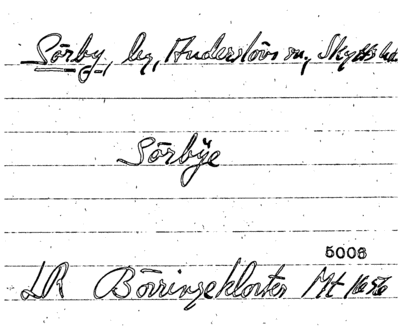 Sörby, by, Anderslövs sn, Skytts hd.
Sörbÿe
5006
LR Börringekloster Mt 1656